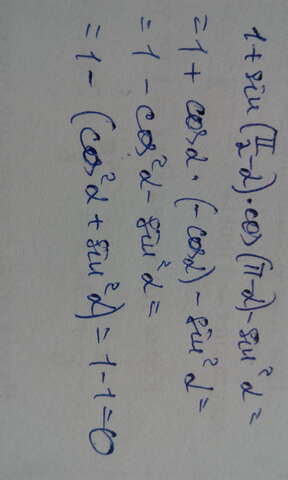 1 + sin(π/2 - α) · cos(π - α) - sin²α =
= 1 + cosα · (-cosα) - sin²α =
= 1 - cos²α - sin²α =
= 1 - (cos²α + sin²α) = 1 - 1 = 0